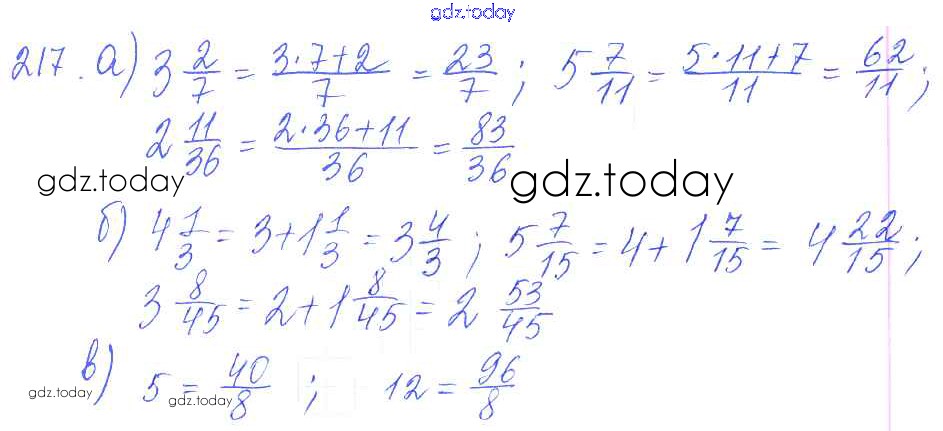 gdz.today
217. а) 3 2/7 = (3·7+2)/7 = 23/7 ; 5 7/11 = (5·11+7)/11 = 62/11 ;
2 11/36 = (2·36+11)/36 = 83/36
gdz.today gdz.today
б) 4 1/3 = 3 + 1 1/3 = 3 4/3 ; 5 7/15 = 4 + 1 7/15 = 4 22/15 ;
3 8/45 = 2 + 1 8/45 = 2 53/45
в) 5 = 40/8 ; 12 = 96/8
gdz.today gdz.today